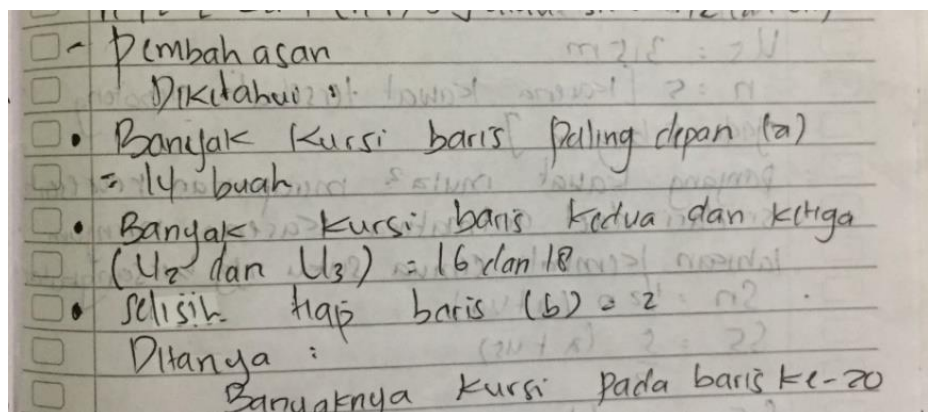 - Pembahasan
Diketahui :
• Banyak Kursi baris paling depan (a)
= 14 buah
• Banyak kursi baris kedua dan ketiga
(U2 dan U3) = 16 dan 18
• Selisih tiap baris (b) = 2
Ditanya :
Banyaknya kursi pada baris ke-20